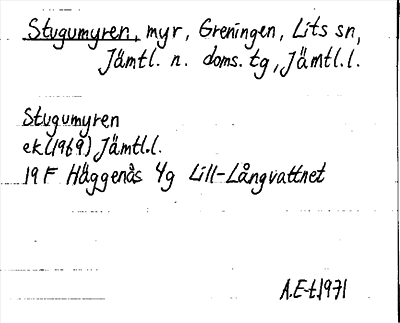 Stugumyren, myr, Greningen, Lits sn,
Jämtl. n. doms. tg, Jämtl.l.
Stugumyren
ek(1969) Jämtl.l.
19F Häggenås 4g Lill-Långvattnet
A.E-t.1971